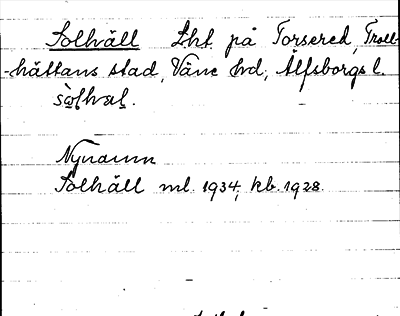 Solhäll Lht. på Torsered, Troll-
-hättans stad, Väne hd, Älfsborgs l.
Nynamn
Solhäll ml. 1934, kb. 1928.